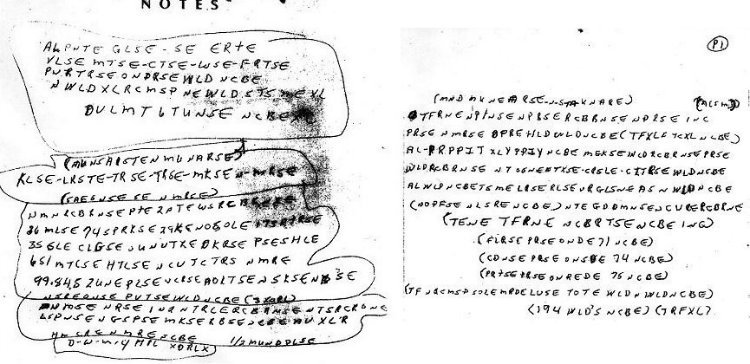 NOTES
ALPNTE GLSE-SE ERTE
VLSE MTSE-CTSE-WSE-FRTSE
PURTRSEONDRSEWLD NCBE
NWLDXLRCMSP NEWLDSTSMEXL
DULMT6TUNSE NCBE
(MUNSARSTENMUNARSE)
KLSE-LRSTE-TRSE-TRSE-MKSEN-MRSE
(SAEGNSESE NMRSE)
NMNRCBRNSEPTE2PTEWSRCBRNSE
36MLSE 74SPRKSE29KENOSOLE173RTRSE
35GLE CLGSEOUNUTXEDKRSE PSESHLE
651MTCSEHTLSENCUTCTRS NMRE
99.84S2UNEPLSENCRSEAOLTSENSKSENRSE
NSREONSE PUTSEWLDNCBE (3XORL)
LSPNSENGSPSE MKSERBSENCBE AUXLR
HMCRENMRENCBE 1/2MUNDPLSE
D-W-M-4 MPL XDRLX
P1
(MNDMKNEARSE-N-S-M-KNARE) (ACSM)
TFRNENPINSENPBSERCBRNSENPRSE INC
PRSENMRSE OPREHLDWLDNCBE(TFXLFTCXLNCBE)
AL-PRPPIT XLYPPIYNCBE MGKSEWLDRCBRNSEPRSE
WLDRCBRNSENTSGNENTXSE-CRSLE-CITRSEWLDNCBE
ALWLDNCBETSMELRSERLSEURGLSNEASNWLDNCBE
(NOPFSENLSRENCBE) NTEGDDMNSENCURERCBRNE
(TENE TFRNE NCBRTSENCBE ING)
(FLRSE PRSE ONDE 71 NCBE)
(CDNSE PRSEONSDE 74 NCBE)
(PRTSE PRSEONREDE 75 NCBE)
(TFNRCMSPSOLEMRDELUSE TOTE WLDNWLDNCBE)
(194 WLD'S NCBE) (TRFXL)